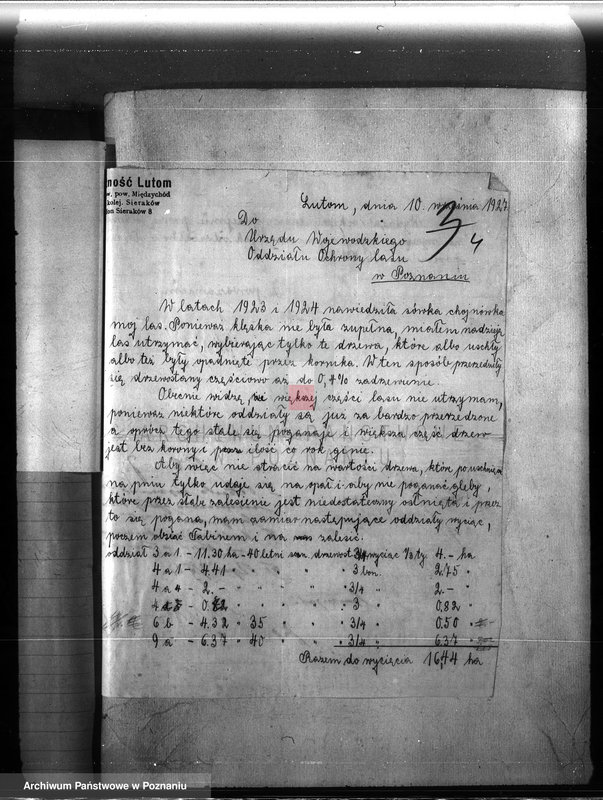 ność Lutom
w. pow. Międzychód
kolej. Sieraków
on Sieraków 8
Lutom, dnia 10 września 1927
3/4
Do
Urzędu Wojewodzkiego
Oddziału Ochrony lasu
w Poznaniu
W latach 1923 i 1924 nawiedziła sówka chojnówka
moj las. Ponieważ klęska nie była zupełna, miałem nadzieję
las utrzymać, wybierając tylko te drzewa, które albo uschły
albo też były opadnięte przez kornika. W ten sposób przerzedziły
się drzewostany częściowo aż do 0,4% zadrzewienie.
Obecnie widzę, że większej części lasu nie utrzymam,
ponieważ niektóre oddziały są już za bardzo przerzedzone
a oprócz tego stale się poganaje i większa część drzew
jest bez korony i ilość co rok ginie.
Aby więc nie stracić na wartości drzewa, które po uschnięciu
na pniu tylko udaje się na opał i aby nie poganać gleby
które przez słabe zalesienie jest niedostateczny osłnięta i przez
to się pogana, mam zamiar następujące oddziały wyciąć,
poczem obsiać łubinem i na zalesić.
oddział 3 a 1 - 11.30 ha - 40 letni drzewost. 3/4 wyciąc 1/3 tj. 4.- ha
4 a 1 - 4.41 " " " 3 bon. 2.75 "
4 a 4 - 2.- " " " 3/4 " 2.- "
4 - 0.82 " " " 3 " 0.82 "
6 b - 4.32 " 35 " " 3/4 " 0.50 "
9 a - 6.37 " 40 " " 3/4 " 6.37 "
Razem do wycięcia 16,44 ha
Archiwum Państwowe w Poznaniu